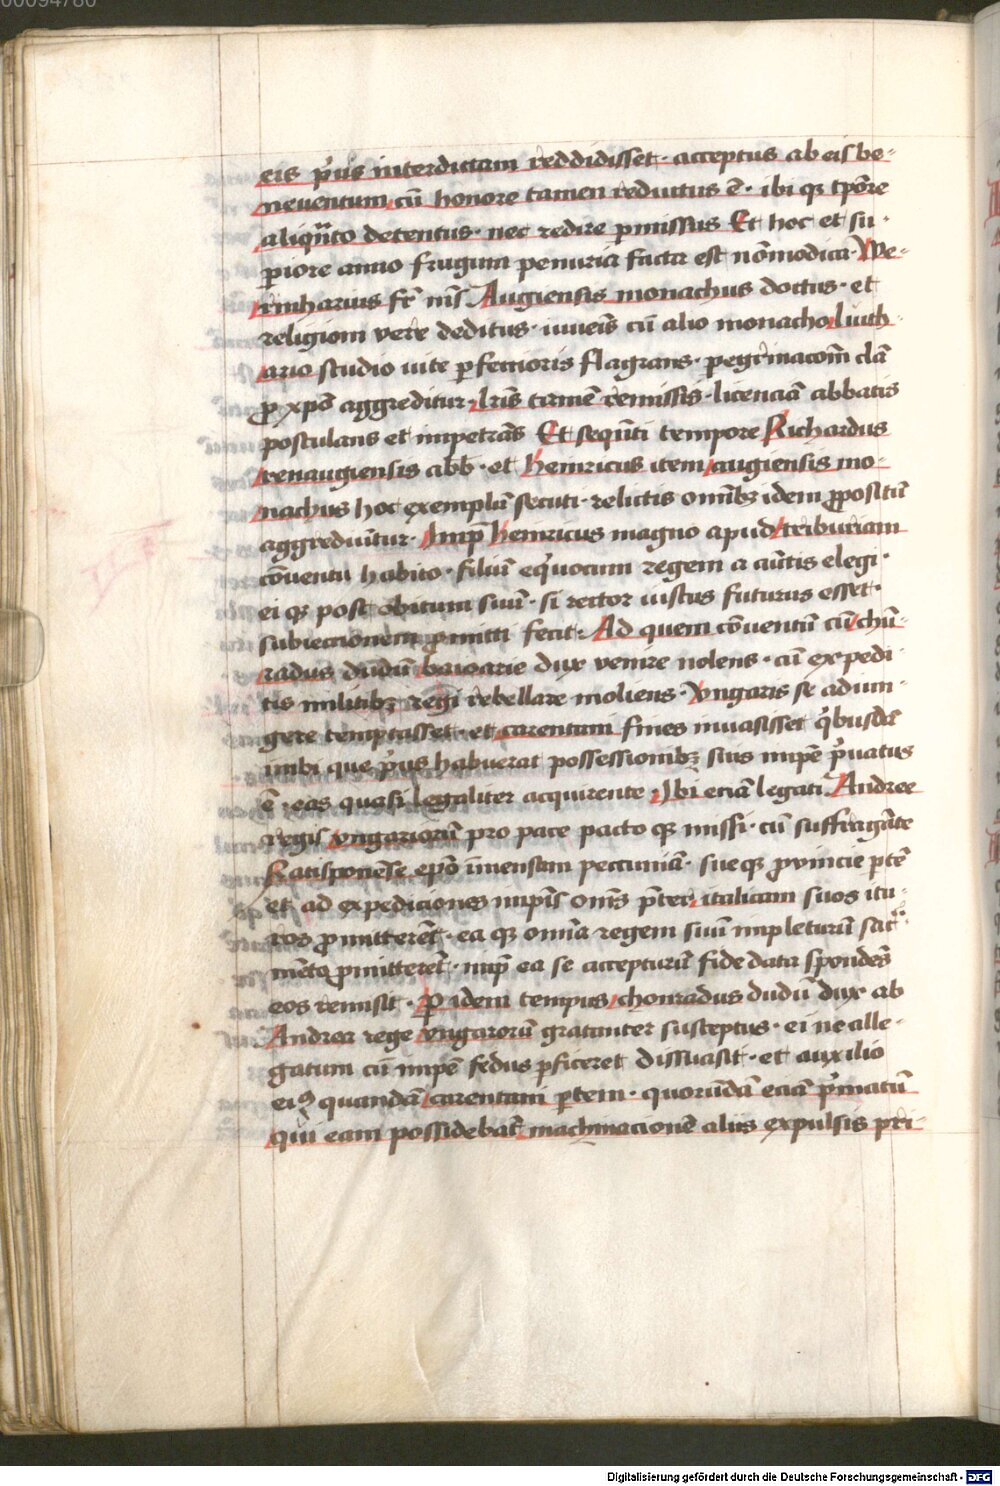 00094780
eis p̾us interdictam reddidisset · acceptus ab eis be-
neuentum cū honore tamen reductus ē · ibi qꝫ tp̄ore
aliqn̄to detentus · nec redire ꝑmissus Et hoc et su-
ꝑiore anno frugum penuria facta est nōmodica · We-
rinharius fr̄ nr̄s Augiensis monachus doctus · et
religiom vere deditus · iuueīs cū alio monacho Liuth-
ario studio uite ꝑfectioris flagrans · pegrinacoīn clā
ꝓ xp̄o aggreditur · lr̄is tamē remissis · licenciā abbatis
postulans et impetrās Et seqn̄ti tempore Richardus
renaugiensis abb · et Heinricus item augiensis mo-
nachus hoc exemplū secuti · relictis om̄ibꝫ idem ꝓpositū
aggrediūtur · Imp̄ Heinricus magno apud triburiam
cōuentu habito · filiū equocum regem a cūtis elegi ·
ei qꝫ post obitum suū · si rector iustus futurus esset ·
subiectionem ꝓmitti fecit : Ad quem cōuentū cū chū-
radus dudū baioarie dux venire nolens · cū expedi-
tis militibꝫ regi rebellare moliens · vngaris se adiun-
gere temptasset · et carentani fines inuasisset q̾busdā
inibi que p̾us habuerat possessionibꝫ suis impē p̾uatus
ē · eas quasi legaliter acquirente · Ibi eciā legati Andree
regis vngariorū pro pace pacto qꝫ missi · cū suffragāte
Ratisponēse ep̄o īmensam peccuniā · sue qꝫ ꝓuincie ꝑtē
et ad expediciones imp̄is om̄s p̄ter italicam suos itu-
ros ꝓmitterēt · ea qꝫ omīa regem suū impleturū sacr̄-
mēto ꝓmitterēt · imp̄ ea se accepturū fide data spondēs
eos remisit · Ꝑ idem tempus chonradus dudū dux ab
Andrea rege vngarorū gratanter susceptus · ei ne alle-
gatum cū impē fedus ꝑficeret dissuasit · et auxilio
eiꝰ quandā carentani ꝑtem · quorūdā eciā p̾matū
qui eam possidebāt machinacionē aliis expulsis pri-
Digitalisierung gefördert durch die Deutsche Forschungsgemeinschaft - DFG